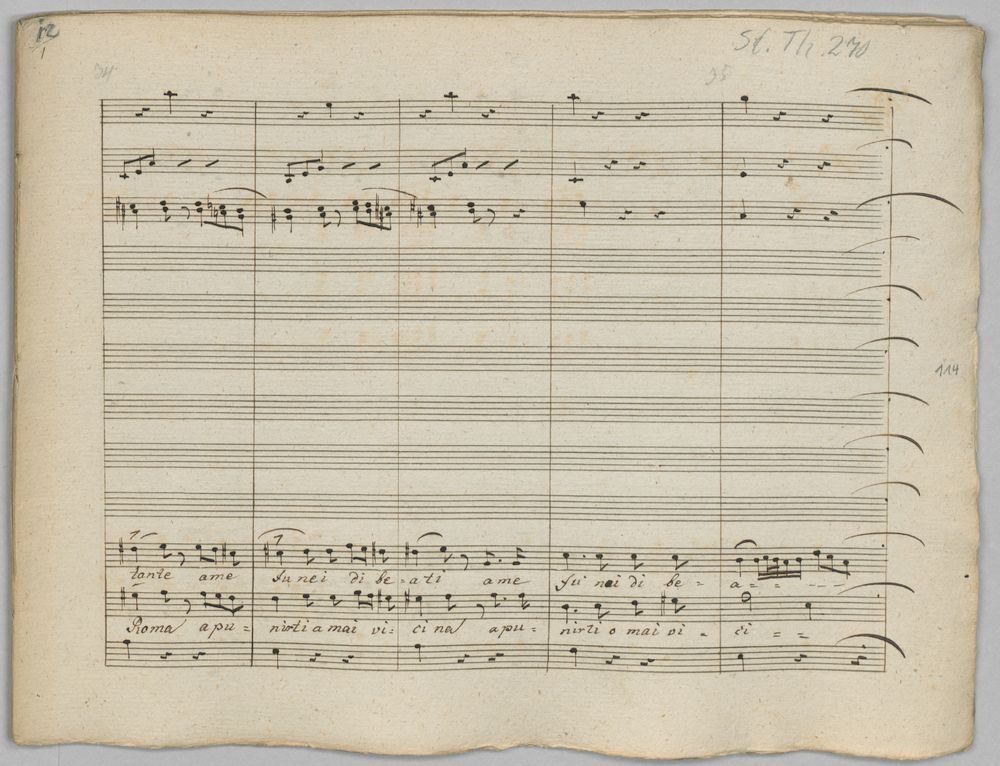 12
1
St. Th. 270
34
35
114
tante ame fu nei di be = ati ame fu nei di be = a = = - - -
Roma a pu = nirti a mai vi = ci na a pu = nirti o mai vi = ci = =